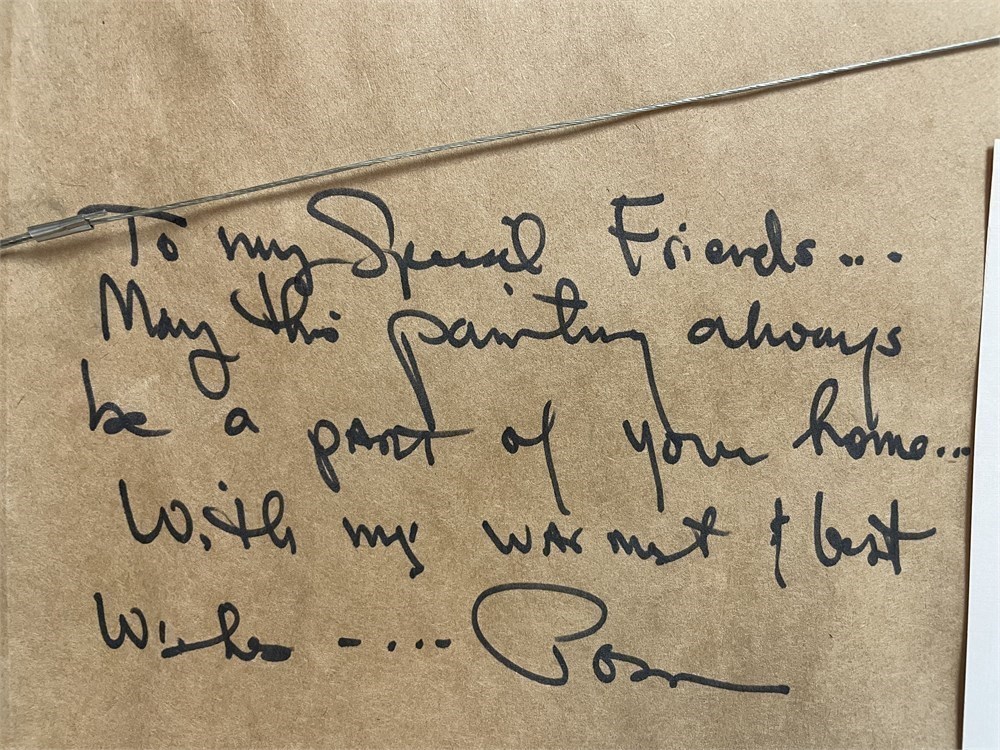 To my Special Friends...
May this painting always
be a part of your home...
With my warmest & best
Wishes -....